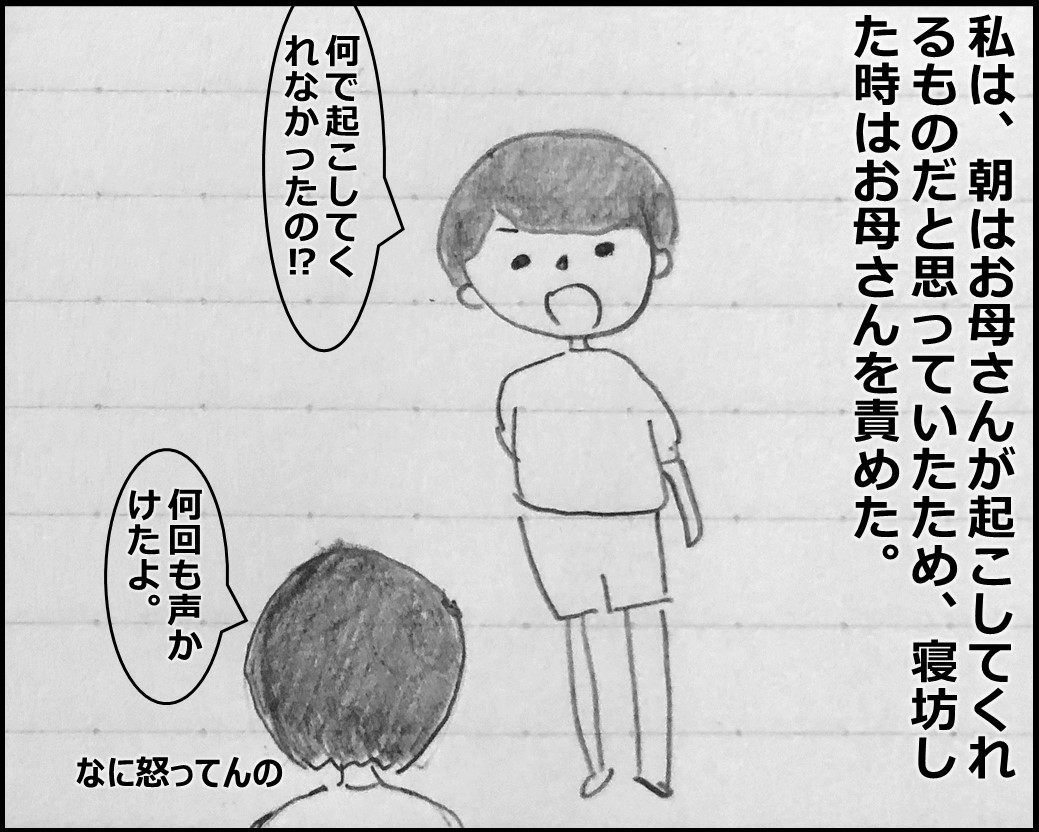 私は、朝はお母さんが起こしてくれ
るものだと思っていたため、寝坊し
た時はお母さんを責めた。
何で起こしてく
れなかったの!?
何回も声か
けたよ。
なに怒ってんの